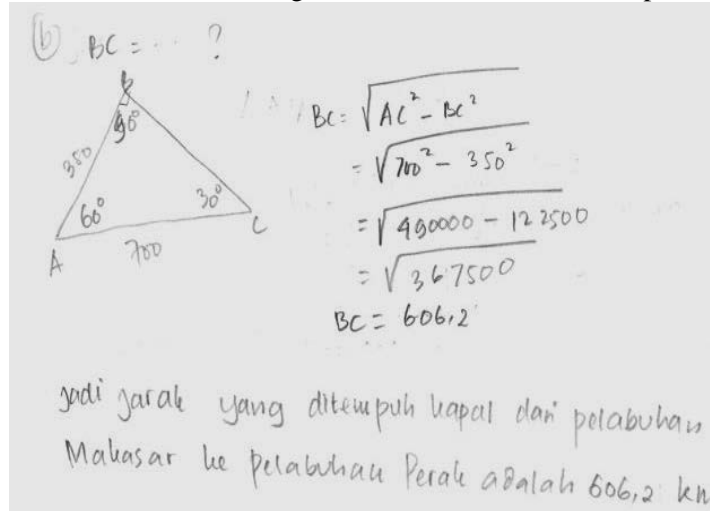 (b) BC = ... ?
B
90°
350
60°
30°
A
700
C
BC = √AC² - BC²
= √700² - 350²
= √490000 - 122500
= √367500
BC = 606,2
Jadi jarak yang ditempuh kapal dari pelabuhan
Makasar ke pelabuhan Perak adalah 606,2 km